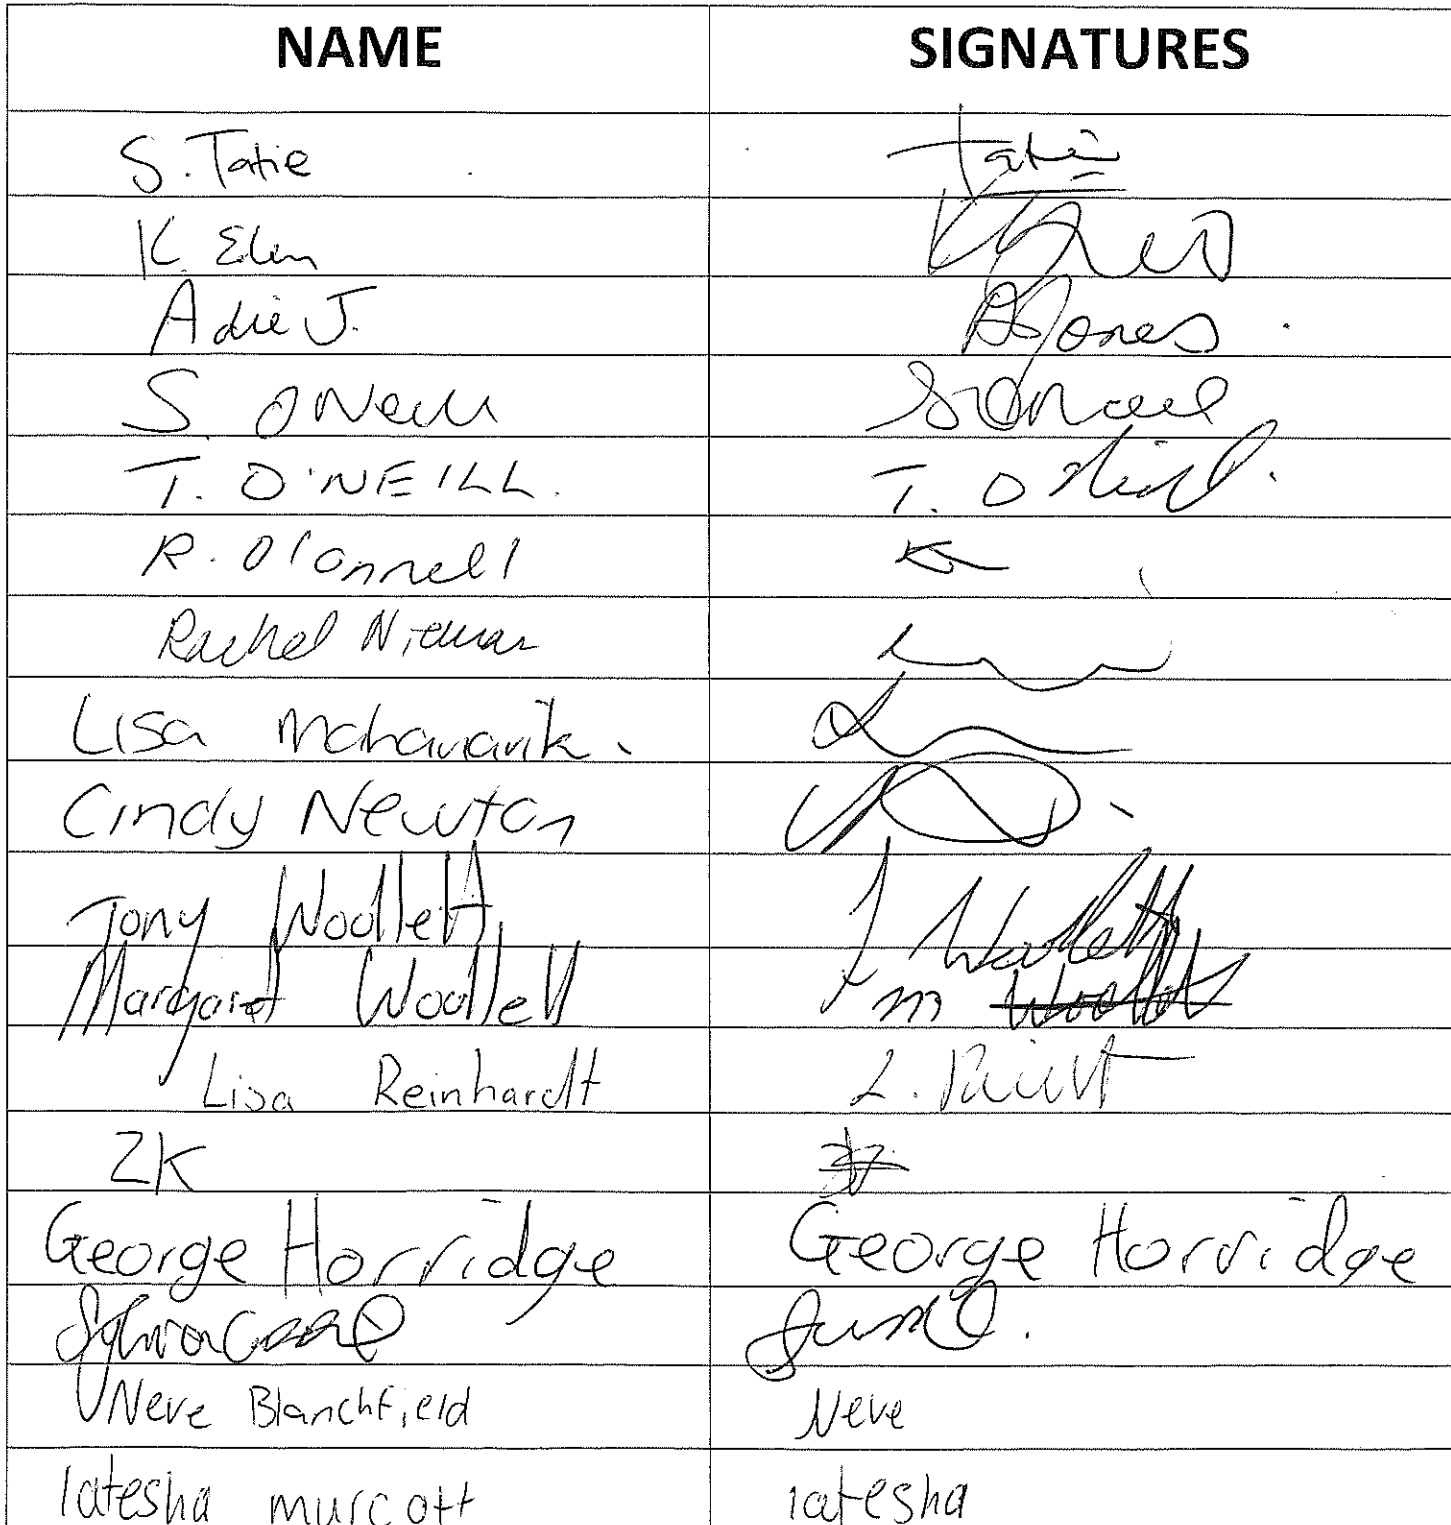 NAME SIGNATURES
S. Tatie Tatie
K. Elm
Adie J. AJones
S. ONeill
T. O'NEILL. T. O'Neill.
R. O'Connell
Rachel Nieman
Lisa
Cindy Newton
Tony Woollett T Woollett
Margaret Woollett m Woollett
Lisa Reinhardt L.
ZK
George Horridge George Horridge
Neve Blanchfield Neve
latesha murcott latesha